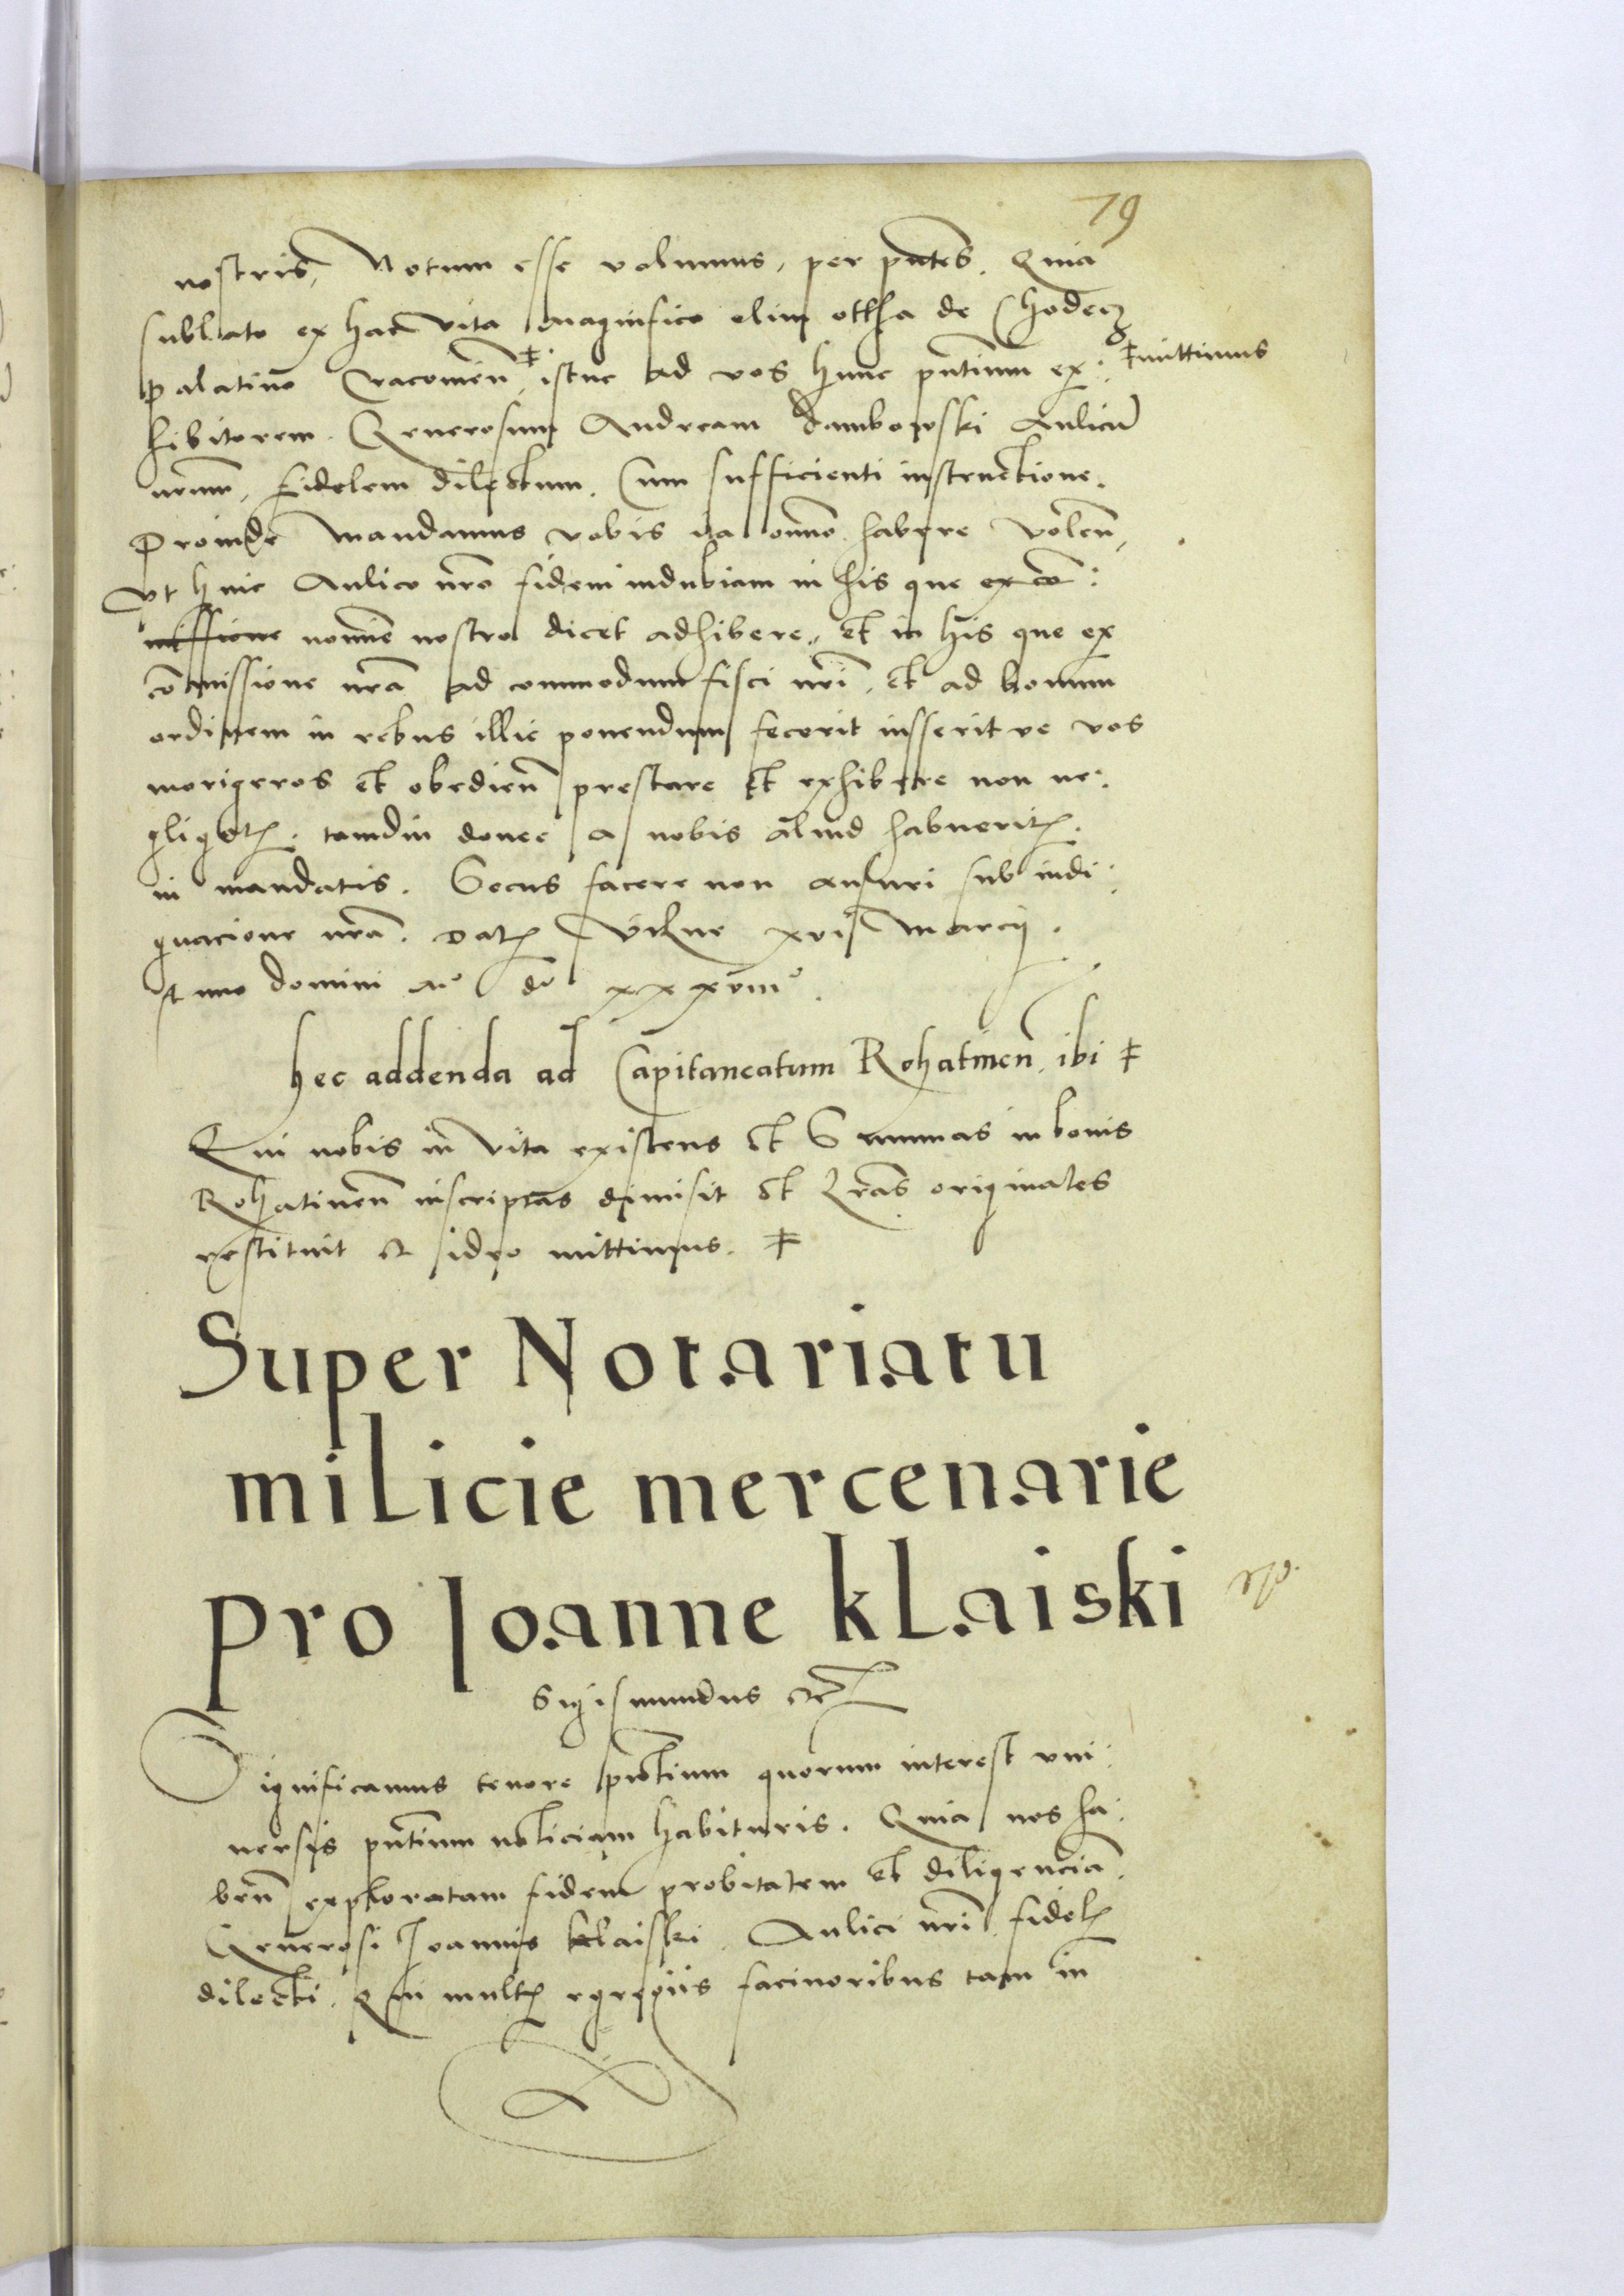 79
nostris, Notum esse volumus, per pñtes. Quia
sublato ex hac vita magnifico olim ottha de Chodecz
palatino Cracouieñ ǂ istuc ad vos hunc pñtium ex: ǂ mittimus
hibitorem. Generosum Andream Dambowski Aulicũ
nrum, Fidelem dilectum. Cum sufficienti instructione.
Proinde mandamus vobis ita omno habere voleñ,
vt huic Aulico nro fidem indubiam in his que ex co:
missione nomine nostro dicet adhibere, et in his que ex
cõmissione nra ad commodum fisci nri, et ad bonum
ordinem in rebus illic ponendum fecerit iusserit ve vos
morigeros et obedieñ prestare et exhibere non ne:
gligatis. tamdiu donec a nobis aliud habueritis
in mandatis. Secus facere non ausuri sub indi:
gnacione nra. Datum Vilne xvi Marcij.
Anno domini Mo do xxxviiio.
hec addenda ad Capitaneatum Rohatineñ, ibi ǂ
Qui nobis in vita existens et Summas in bonis
Rohatineñ inscriptas dimisit et Lras originales
restituit et ideo mittimus. ǂ
Super Notariatu
milicie mercenarie
pro Joanne klaiski
Sigismundus etc
Significamus tenore pñtium quorum interest vni:
uersis pñtium noticiam habituris. Quia nos ha:
beñ exploratam fidem probitatem et diligenciã
Generosi Joannis klaiski. Aulici nri fidelis
dilecti. Qui multis egregiis facinoribus tam in